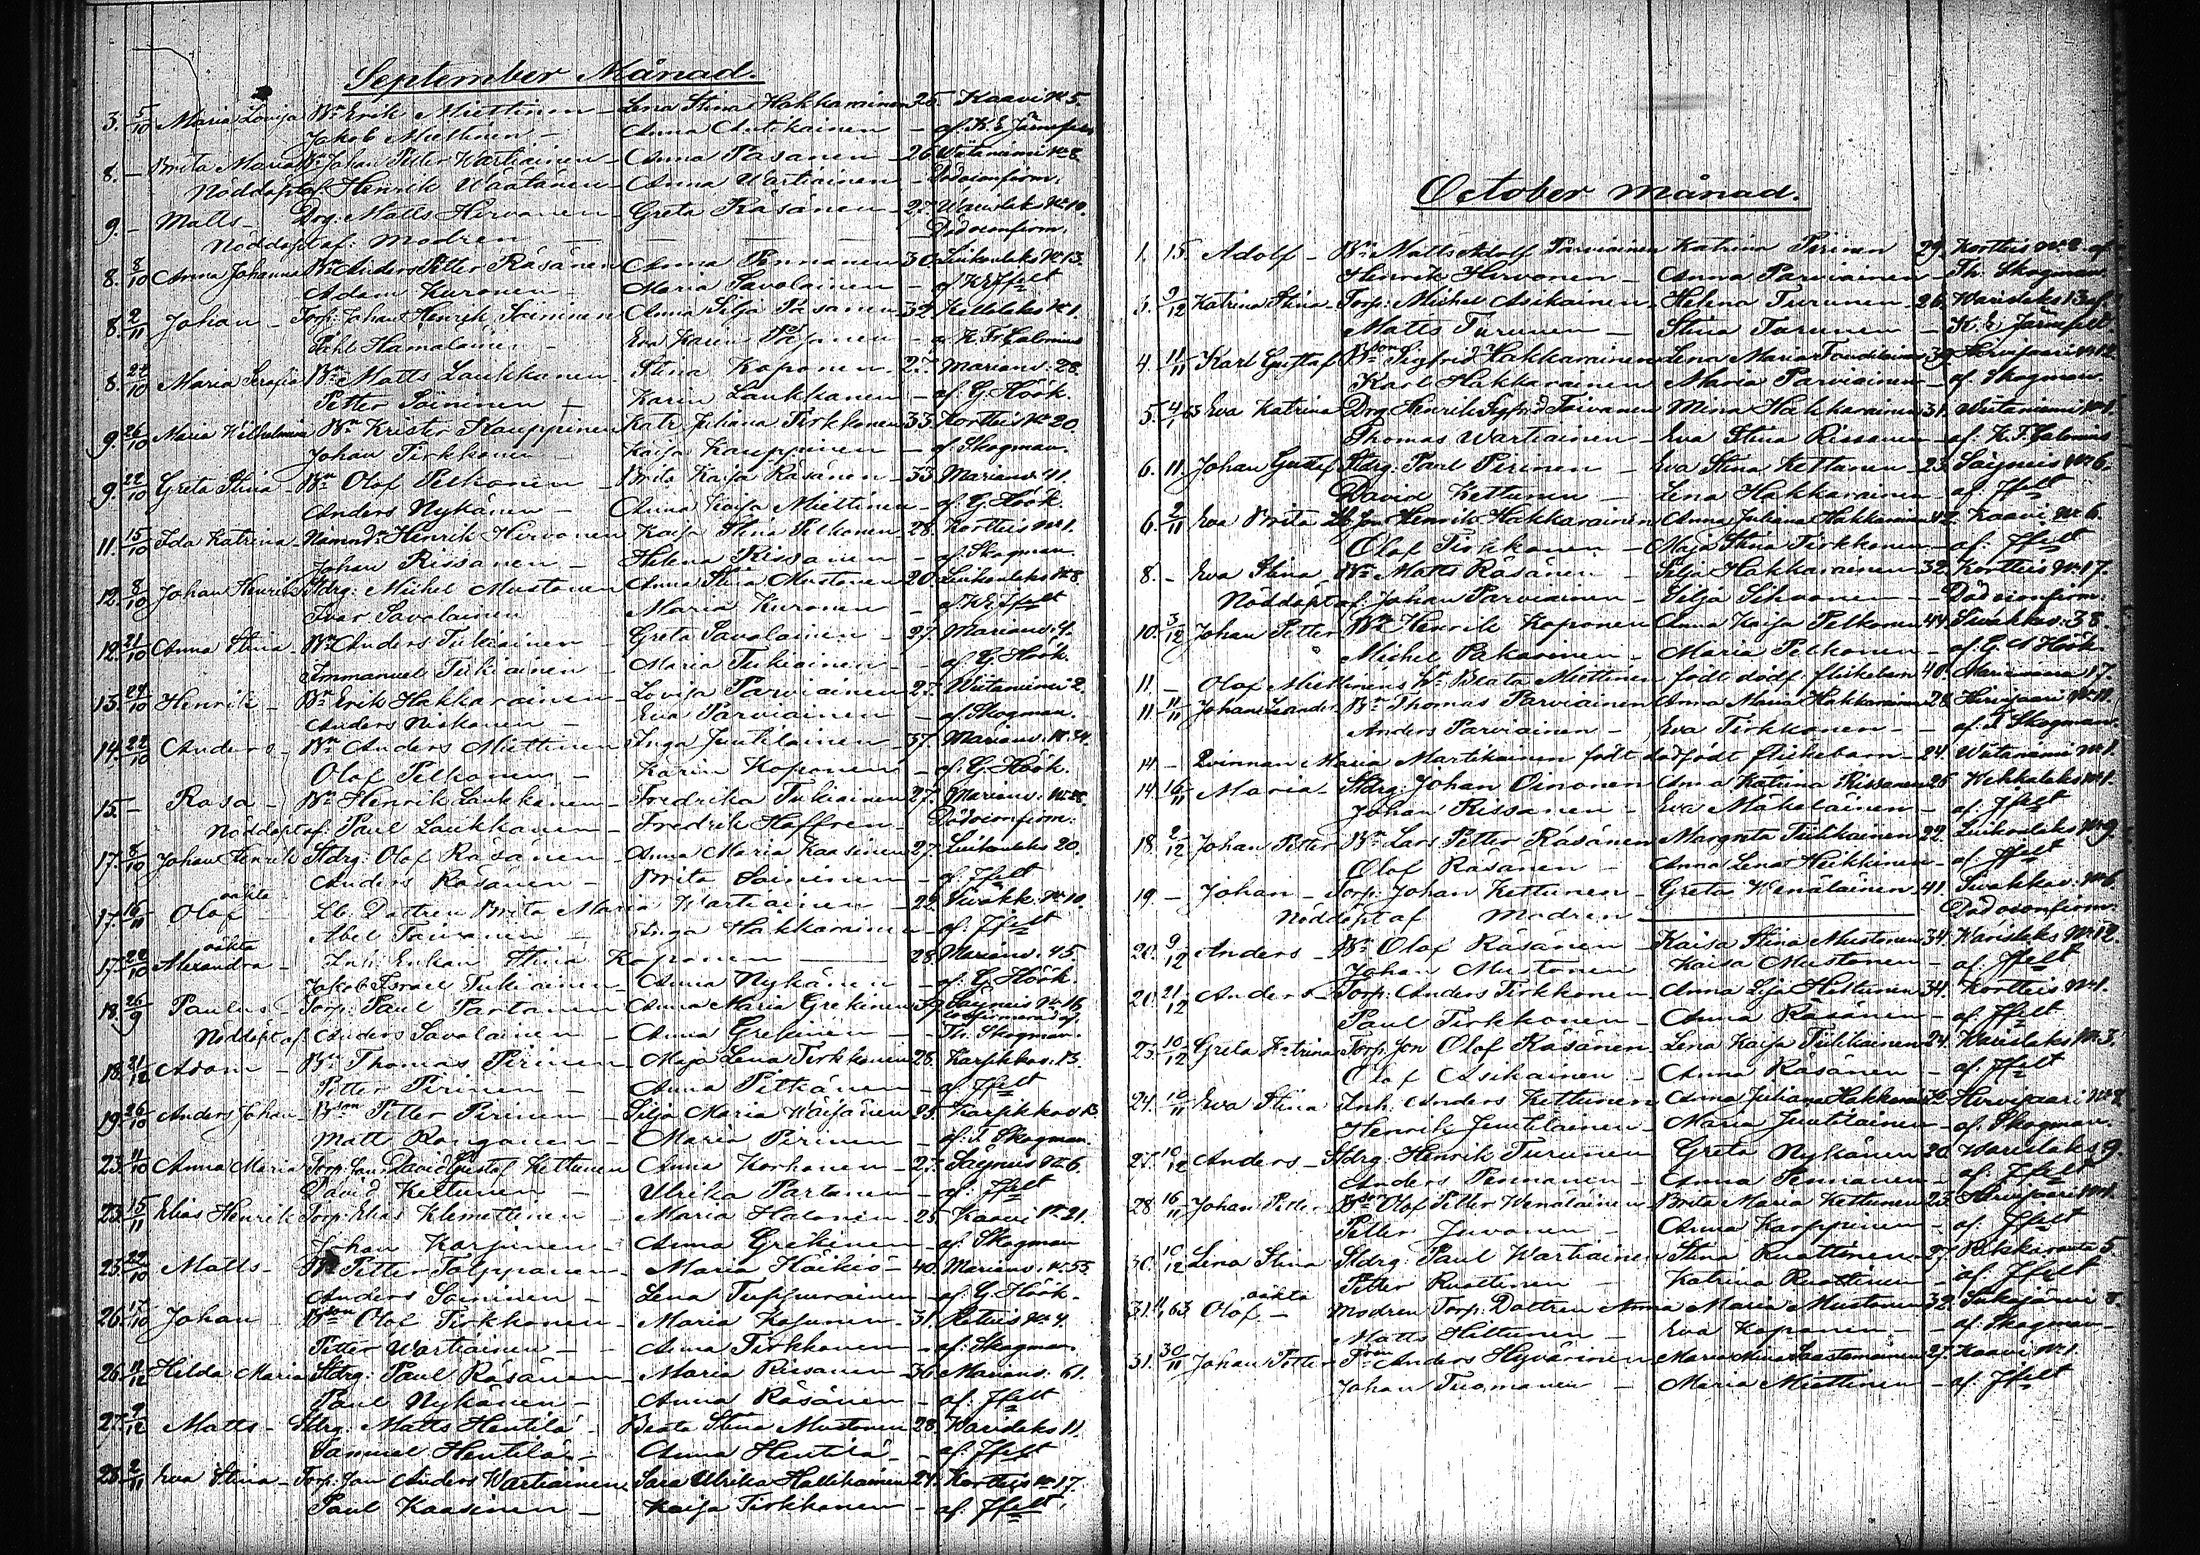 September Månad.
3. 5/10 Maria Lovisa Bn Erik Miettinen - Lena Stina Hakkarainen 25. Kaavi № 5.
Jakob Miettinen - Anna Antikainen - af. K E Järnefelt
8. - Brita Maria Bn Johan Petter Wartiainen - Anna Pasanen - 26 Wiitaniemi № 8
Nöddöpt af Henrik Wäätänen - Anna Wartiainen - Död oconfirm.
9. - Matts - Drg. Matts Hirvonen - Greta Räsänen - 27. Warislaks № 10.
Nöddöpt af: modren - Död oconfirm.
8. 8/10 Anna Johanna Bn Anders Petter Räsänen Anna Pennanen - 30. Luikonlaks № 13.
Adam Kuronen - Maria Savolainen - af K E Jffelt
8. 2/11 Johan - Torp. Johan Henrik Soininen Anna Silja Pasanen - 34. № 1.
Påhl Hämäläinen - Eva Karin - a. K. F. Calonius
8. 22/10 Maria Serafia Bn Matts Laukkanen - Stina Koponen - 27. Marianv. 28.
Petter Soininen - Karin Laukkanen - af. G. Höök.
9. 26/10 Maria Wilhelmina Bn Krister Kauppinen Katr. Juliana Tirkkonen 33. Kortteis № 20.
Johan Tirkkonen - Kaija Kauppinen - af Skogman.
9. 22/10 Greta Stina - Bn Olof Pelkonen - Brita Kaija Räsänen - 33. Marianv. 41.
Anders Nykänen - Anna Kaija Miettinen - af. G. Höök.
11. 15/10 Ida Katrina - Nämnd. Henrik Hirvonen Kaija Stina Pelkonen 28. Kortteis № 1.
Johan Rissanen - Helena Rissanen - af. Skogman.
12. 8/10 Johan Henrik Stdrg. Michel Mustonen Anna Stina Mustonen 20. Luikonlaks № 8.
Ivar Savolainen Maria Kuronen - af K E Jffelt
12. 21/10 Anna Stina - Bn Anders Tukiainen - Greta Savolainen - 27. Marianv. 4.
Immanuel Tukiainen - Maria Tukiainen - af. G. Höök.
13. 24/10 Henrik - Bn Erik Hakkarainen - Lovisa Parviainen 27. Wiitaniemi 2.
Anders Niskanen - Eva Parviainen - af. Skogman.
14. 22/10 Anders - Bn Anders Miettinen Inga Juutilainen - 37. Marianv. № 34.
Olof Pelkonen - Karin Koponen - af. G. Höök.
15. - Rosa - Bn Henrik Laukkanen - Fredrika Tukiainen 27. Marianv. № 28.
Nöddöpt af. Paul Laukkanen - Fredrik Hoffren - Död oconfirm.
17. 8/10 Johan Henrik Stdrg. Olof Räsänen - Anna Maria Kaasinen 27. Luikonlaks 20.
Anders Räsänen - Brita Soininen - af. Jffelt
17. 16/11 oäkta Olof - Lb. Dottren Brita Maria Wartiainen - 22. Siwakk. № 10.
Abel Toivanen - Inga Hakkarainen - af. Jffelt
17. 22/10 oäkta Alexandra - Inh. Enkan Stina Koponen - 28. Marianv. 45.
Jakob Israel Tukiainen - Anna Nykänen - af. G. Höök.
18. 26/9 Paulus - Torp. Paul Partanen - Anna Maria Grekinen 39. Säyneis № 16.
Nöddöpt af Anders Savolainen - Anna Grekinen - confirmerad af Th. Skogman.
18. 21/12 Adam - Bn Thomas Pirinen - Maja Lena Tirkkonen 28. Karjkkav. 13.
Petter Pirinen - Anna Pitkänen - af. Jffelt
19. 26/10 Anders Johan - Bson Petter Pirinen - Silja Maria Wäisänen 25. Karjkkav 13.
Matt Ronganen - Maria Pirinen - af. T. Skogman.
23. 11/10 Anna Maria Torp. Son. David Gustaf Kettunen Anna Korhonen - 27. Säyneis № 6.
David Kettunen - Ulrika Partanen - af. Jffelt
23. 15/11 Elias Henrik Torp. Elias Klemettinen - Maria Halonen - 25. Kaavi № 21.
Johan Karpinen - Anna Grekinen - af Skogman
25. 22/10 Matts - Bn Petter Tolppanen - Maria Häikiö - 40. Marianv. № 55.
Anders Soininen - Lena Tuppurainen - af. G. Höök.
26. 17/10 Johan - Bson Olof Tirkkonen - Maria Kosunen - 31. № 4.
Petter Wartiainen - Anna Tirkkonen - af. Skogman
26. 11/12 Hilda Maria Stdrg. Paul Räsänen - Maria Rissanen - 36. Marianv. 61.
Paul Nykänen - Anna Räsänen - af. Jffelt
27. 9/12 Matts - Stdrg. Matts Hentilä - Beata Stina Mustonen 28. Warislaks 11.
Samuel Hentilä - Anna Hentilä - af. Jffelt
28. 2/11 Eva Stina - Torp. Son Anders Wartiainen Sara Ulrika Hakkarainen 24. Kortteis № 17.
Paul Kaasinen - Kaija Tirkkonen - af. Jffelt
October månad.
1. 15. Adolf - Bn Matts Adolf Parviainen Katrina Pirinen 29. Kortteis № 2. af
Henrik Hirvonen - Anna Parviainen - Th. Skogman.
3. 9/12 Katrina Stina - Torp. Michel Asikainen - Helena Turunen - 26. Warislaks 13. af
Matts Turunen - Stina Turunen - K. E. Järnefelt
4. 11/11 Karl Gustaf Bson Sigfrid Hakkarainen Lena Maria 39. Hirvijaari № 12.
Karl Hakkarainen Maria Parviainen - af. Skogman.
5. 4/1 63 Eva Katrina Drg. Henrik Sigfrid Toivanen Mina Hakkarainen 31. Wiitaniemi № 1.
Thomas Wartiainen - Eva Stina Rissanen - af. K. F. Calonius
6. 11. Johan Gustaf Stdrg. Paul Pirinen - Eva Stina Kettunen - 23. Säyneis № 6.
David Kettunen - Lena Hakkarainen - af. Jffelt
6. 2/11 Eva Brita Lb. Jon Henrik Hakkarainen Anna Juliana Hakkarainen 42. Kaavi № 6.
Olof Tirkkonen - Maja Stina Tirkkonen - af. Jffelt
8. - Eva Stina Bn Matts Räsänen - Silja Hakkarainen 32. Kortteis № 17.
Nöddöpt af. Johan Parviainen - Silja Sihvonen - Död oconfirm.
10. 3/12 Johan Petter Bn Henrik Koponen Anna Kaija Pelkonen 44. Siwakkav. 38
Michel Pakarinen - Maria Pelkonen - af. G. A Höök.
11. - Olof Miettinens Hu Beata Miettinen födt dödf. flickebarn 40. Marianvaara 17.
11. 11/11 Johan Leander Bn Thomas Parviainen Anna Maria Hakkarainen 28. Hirvijaari № 11.
Anders Parviainen - Eva Tirkkonen - af. T. Skogman.
14 - Qvinnan Maria Martikainen födt dödfödt flickebarn - 24. Wiitaniemi № 1.
14. 16/11 Maria - Stdrg. Johan Oinonen Anna Katrina Rissanen 26. № 1.
Johan Rissanen - Eva Mäkeläinen - af. Jffelt
18. 2/12 Johan Petter Bn Lars Petter Räsänen Margreta Tiihkainen 22. Luikonlaks № 9.
Olof Räsänen - Anna Lena Heikkinen - af Jffelt
19 - Johan - Torp. Johan Kettunen - Greta Wenäläinen 41. Siwakkav. № 6.
Nöddöpt af Modren - Död oconfirm.
20. 9/12 Anders - Bn Olof Räsänen - Kaisa Stina Mustonen 34. Warislaks № 12.
Johan Mustonen - Kaisa Mustonen - af Jffelt
20. 21/12 Anders - Torp. Anders Tirkkonen - Anna Lisa Hiltunen 34. Kortteis № 1.
Paul Tirkkonen - Anna Räsänen - af. Jffelt
23. 10/12 Greta Katrina Torp. Jon Olof Räsänen - Lena Kaija Tiihkainen 24. Warislaks № 3.
Olof Asikainen - Anna Räsänen - af. Jffelt
24. 10/11 Eva Stina Inh. Anders Kettunen Anna Juliana Hakkarainen Hirvijaari № 8
Henrik Juutilainen - Maria Juutilainen - af. Skogman.
27. 10/12 Anders - Stdrg. Henrik Turunen Greta Nykänen 20 Warislaks 9.
Anders Pennanen - Anna Pennanen - af. Jffelt
28. 16/11 Johan Petter Bson Olof Petter Wenäläinen Brita Maria Kettunen 23. Hirvijaari № 1.
Petter Juvonen - Anna Karppinen - af. Jffelt
30. 10/12 Lena Stina Stdrg. Paul Wartiainen Stina Ruottinen - 27. Rikkaranta 5.
Petter Ruottinen - Katrina Ruottinen - af. Jffelt
31. 4/1 63 oäkta Olof - modren Torp. Dottren Anna Maria Mustonen 32. Sukujärvi 8.
Matts Hiltunen - Eva Koponen - af. Skogman -
31. 30/11 Johan Petter Tson Anders Hyvärinen - Maria Stina Saastamoinen 27. Kaavi № 1.
Johan Tuomainen - Maria Miettinen - af. Jffelt